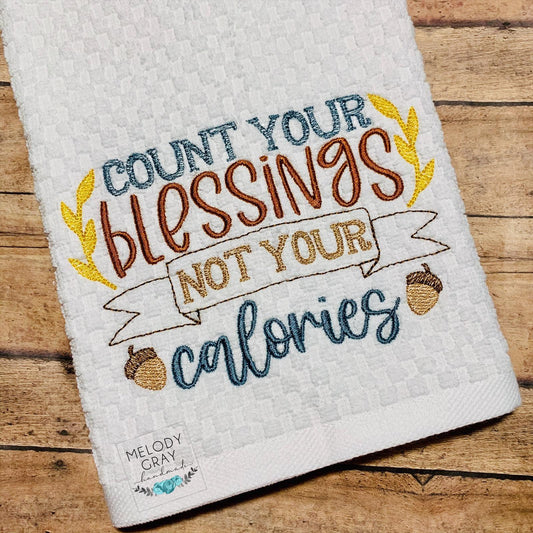 COUNT YOUR
blessings
NOT YOUR
calories
MELODY
GRAY
handmade